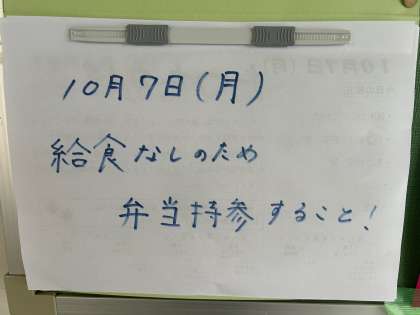 10月7日(月)
給食なしのため
弁当持参すること!